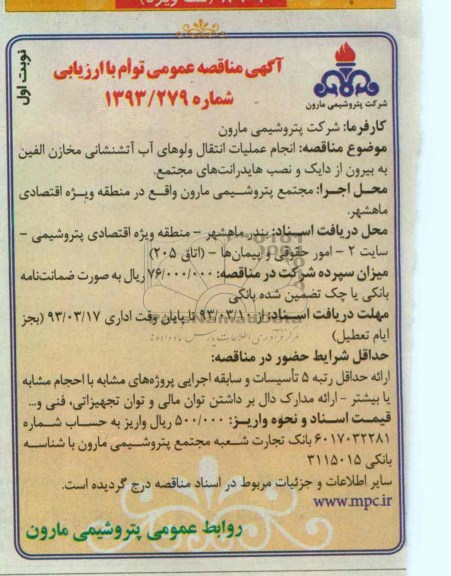 نوبت اول
شرکت پتروشیمی مارون
آگهی مناقصه عمومی توأم با ارزیابی
شماره ۱۳۹۳/۲۷۹
کارفرما: شرکت پتروشیمی مارون
موضوع مناقصه: انجام عملیات انتقال ولوهای آب آتشنشانی مخازن الفین
به بیرون از دایک و نصب هایدرانت‌های مجتمع.
محل اجرا: مجتمع پتروشیمی مارون واقع در منطقه ویژه اقتصادی
ماهشهر.
محل دریافت اسناد: بندر ماهشهر – منطقه ویژه اقتصادی پتروشیمی –
سایت ۲ – امور حقوقی و پیمان‌ها – (اتاق ۲۰۵)
میزان سپرده شرکت در مناقصه: ۷۶/۰۰۰/۰۰۰ ریال به صورت ضمانت‌نامه
بانکی یا چک تضمین شده بانکی
مهلت دریافت اسناد: از ۹۳/۰۳/۱۰ تا پایان وقت اداری ۹۳/۰۳/۱۷ (بجز
ایام تعطیل)
حداقل شرایط حضور در مناقصه:
ارائه حداقل رتبه ۵ تأسیسات و سابقه اجرایی پروژه‌های مشابه با احجام مشابه
یا بیشتر – ارائه مدارک دال بر داشتن توان مالی و توان تجهیزاتی، فنی و...
قیمت اسناد و نحوه واریز: ۵۰۰/۰۰۰ ریال واریز به حساب شماره
۶۰۱۷۰۳۲۲۸۱ بانک تجارت شعبه مجتمع پتروشیمی مارون با شناسه
بانکی ۳۱۱۵۰۱۵
سایر اطلاعات و جزئیات مربوط در اسناد مناقصه درج گردیده است.
www.mpc.ir
روابط عمومی پتروشیمی مارون